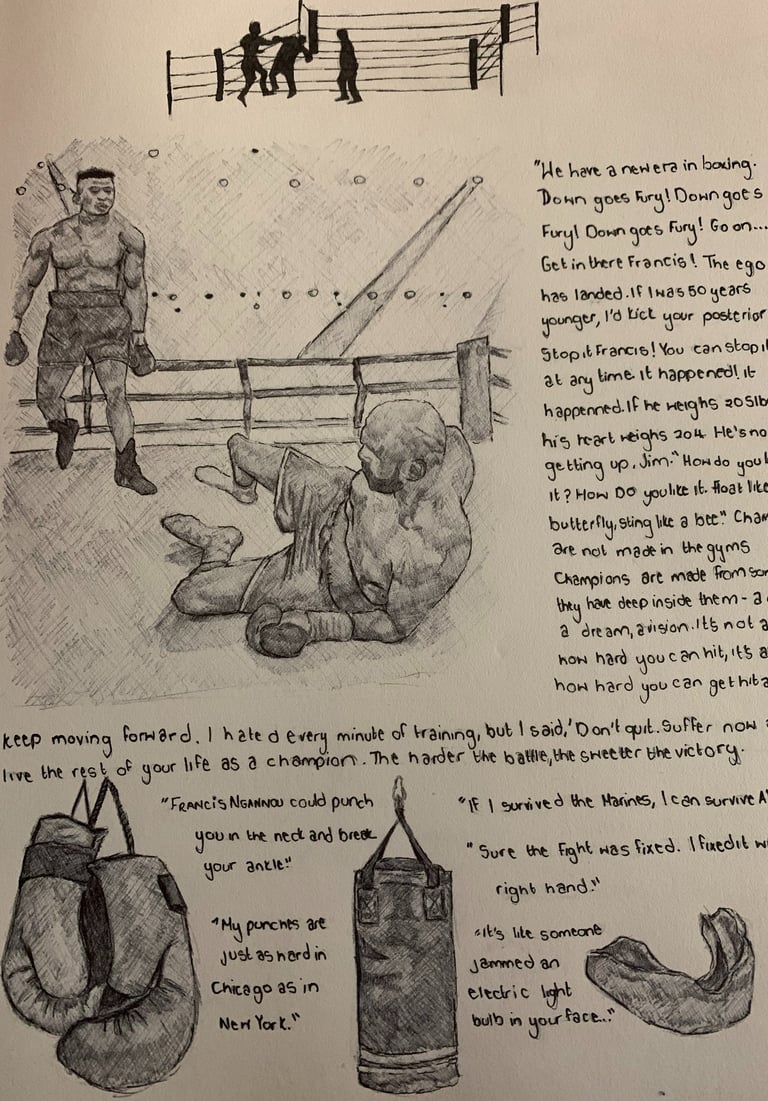 "We have a new era in boxing.
Down goes Fury! Down goes
Fury! Down goes Fury! Go on...
Get in there Francis! The ego
has landed. If I was 50 years
younger, I'd kick your posterior
Stop it Francis! You can stop it
at any time. it happened! it
happenned. If he weighs 205lb
his heart weighs 204. He's no
getting up, Jim." How do you
it? How DO you like it. float like
butterfly, sting like a bee". Cham
are not made in the gyms
Champions are made from som
they have deep inside them - a
a dream, a vision. It's not a
how hard you can hit, it's a
how hard you can get hit a
keep moving forward. I hated every minute of training, but I said, 'Don't quit. Suffer now
live the rest of your life as a champion. The harder the battle, the sweeter the victory.
"FRANCIS NGANNOU could punch
you in the neck and break
your ankle"
"My punches are
just as hard in
Chicago as in
New York."
"If I survived the Marines, I can survive A
"Sure the fight was fixed. I fixed it w
right hand."
"It's like someone
jammed an
electric light
bulb in your face..."